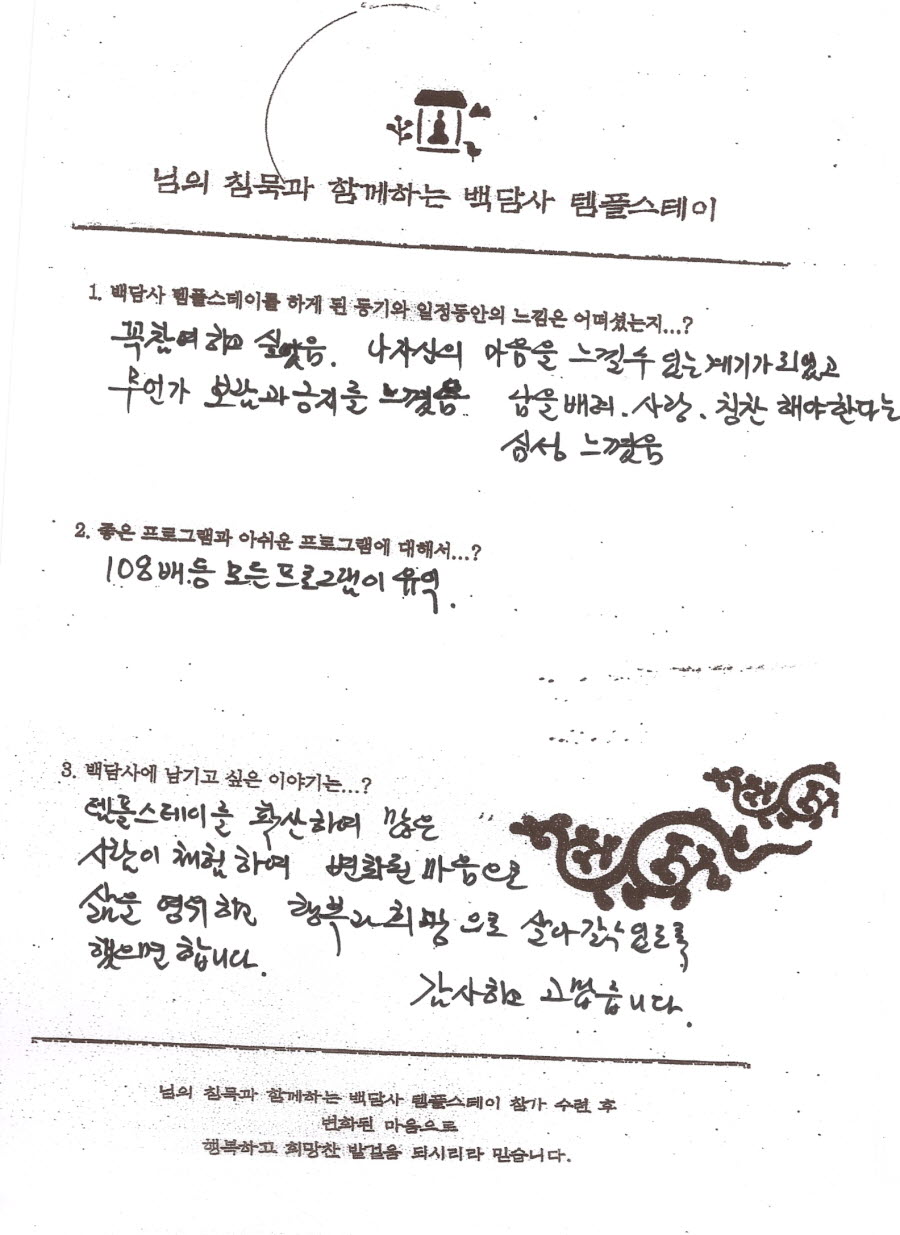 님의 침묵과 함께하는 백담사 템플스테이
1. 백담사 템플스테이를 하게 된 동기와 일정동안의 느낌은 어떠셨는지...?
꼭참여하고 싶었음. 나자신의 마음을 느낄수 있는계기가되었고
무언가 보람과긍지를 느꼈음 남을배려.사랑.칭찬해야한다는
심성 느꼈음
2. 좋은 프로그램과 아쉬운 프로그램에 대해서...?
108배등 모든프로그램이 유익.
3. 백담사에 남기고 싶은 이야기는...?
템플스테이를 확산하여 많은
사람이 체험하여 변화된 마음으로
삶을 영위하고 행복과희망으로 살아갈수있도록
했으면합니다.
감사하고 고맙습니다.
님의 침묵과 함께하는 백담사 템플스테이 참가 수련 후
변화된 마음으로
행복하고 희망찬 발걸음 되시리라 믿습니다.